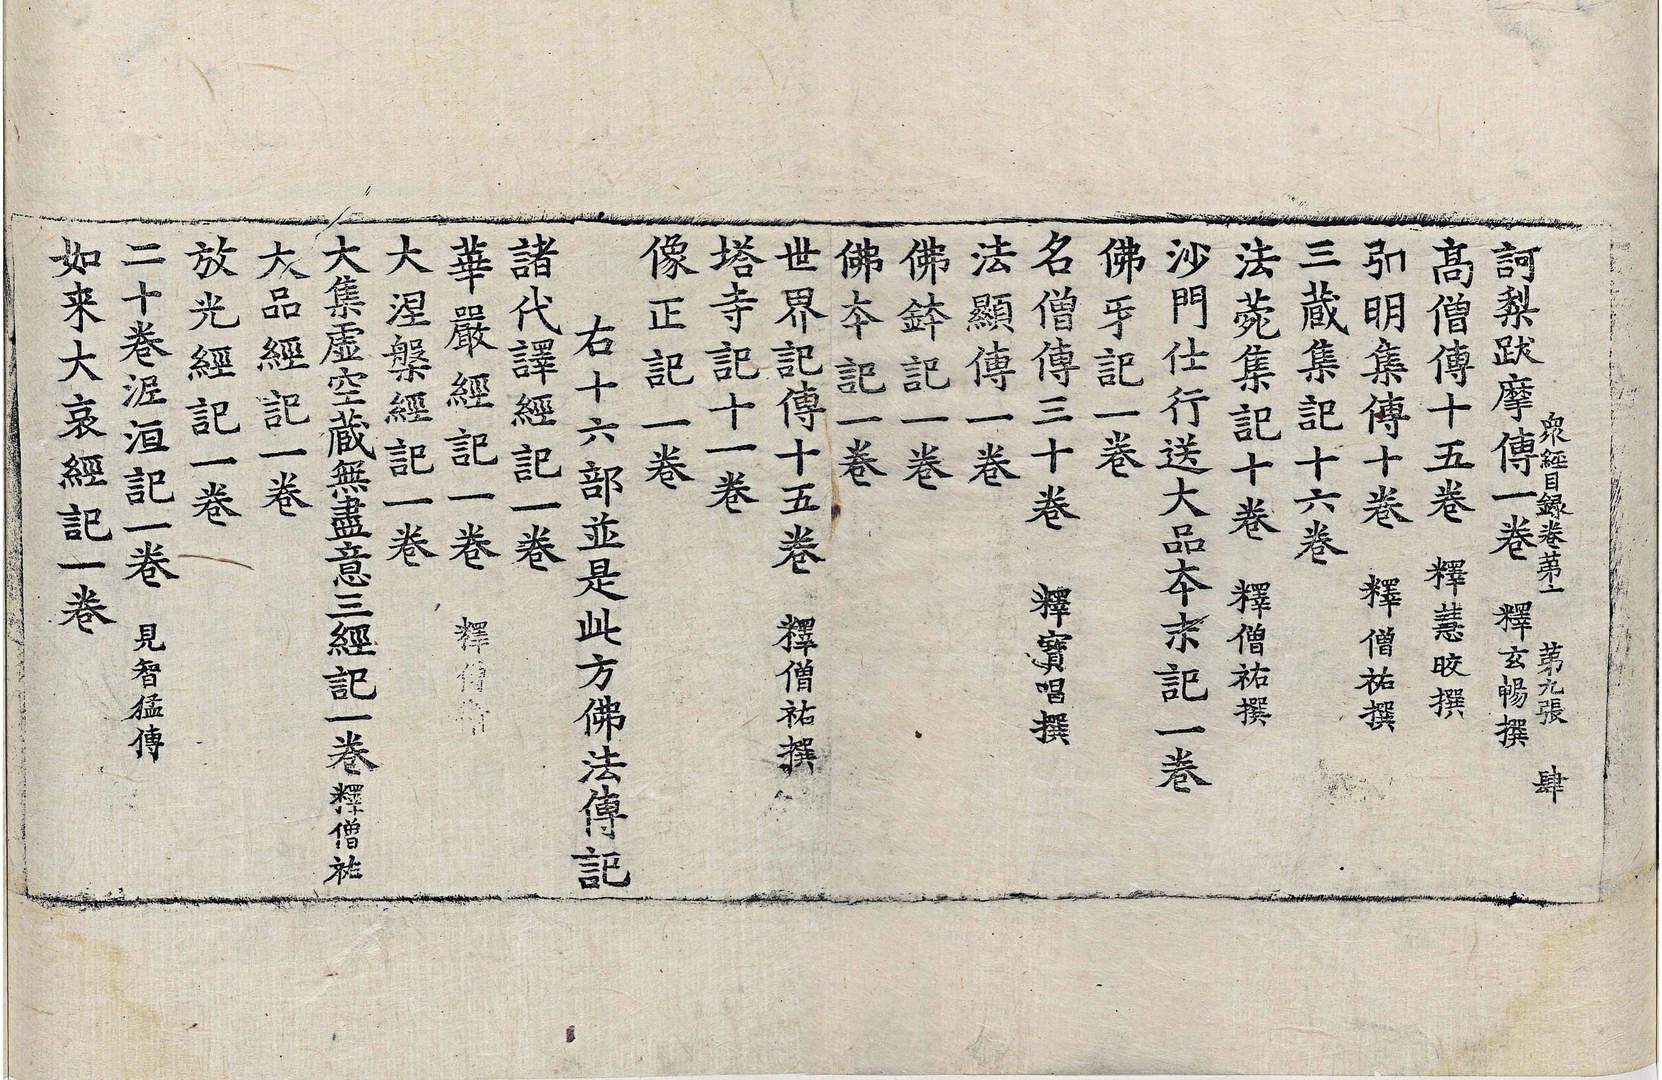 衆經目録卷第六 第九張 肆
訶梨跋摩傳一卷 釋玄暢撰
髙僧傳十五卷 釋慧皎撰
弘明集傳十卷 釋僧祐撰
三蔵集記十六卷
法菀集記十卷 釋僧祐撰
沙門仕行送大品夲末記一卷
佛牙記一卷
名僧傳三十卷 釋寶唱撰
法顯傳一卷
佛鉢記一卷
佛夲記一卷
世界記傳十五卷 釋僧祐撰
塔寺記十一卷
像正記一卷
右十六部並是此方佛法傳記
諸代譯經記一卷
華嚴經記一卷 釋僧
大涅槃經記一卷
大集虛空蔵無盡意三經記一卷 釋僧祐
大品經記一卷
放光經記一卷
二十卷泥洹記一卷 見智猛傳
如来大哀經記一卷